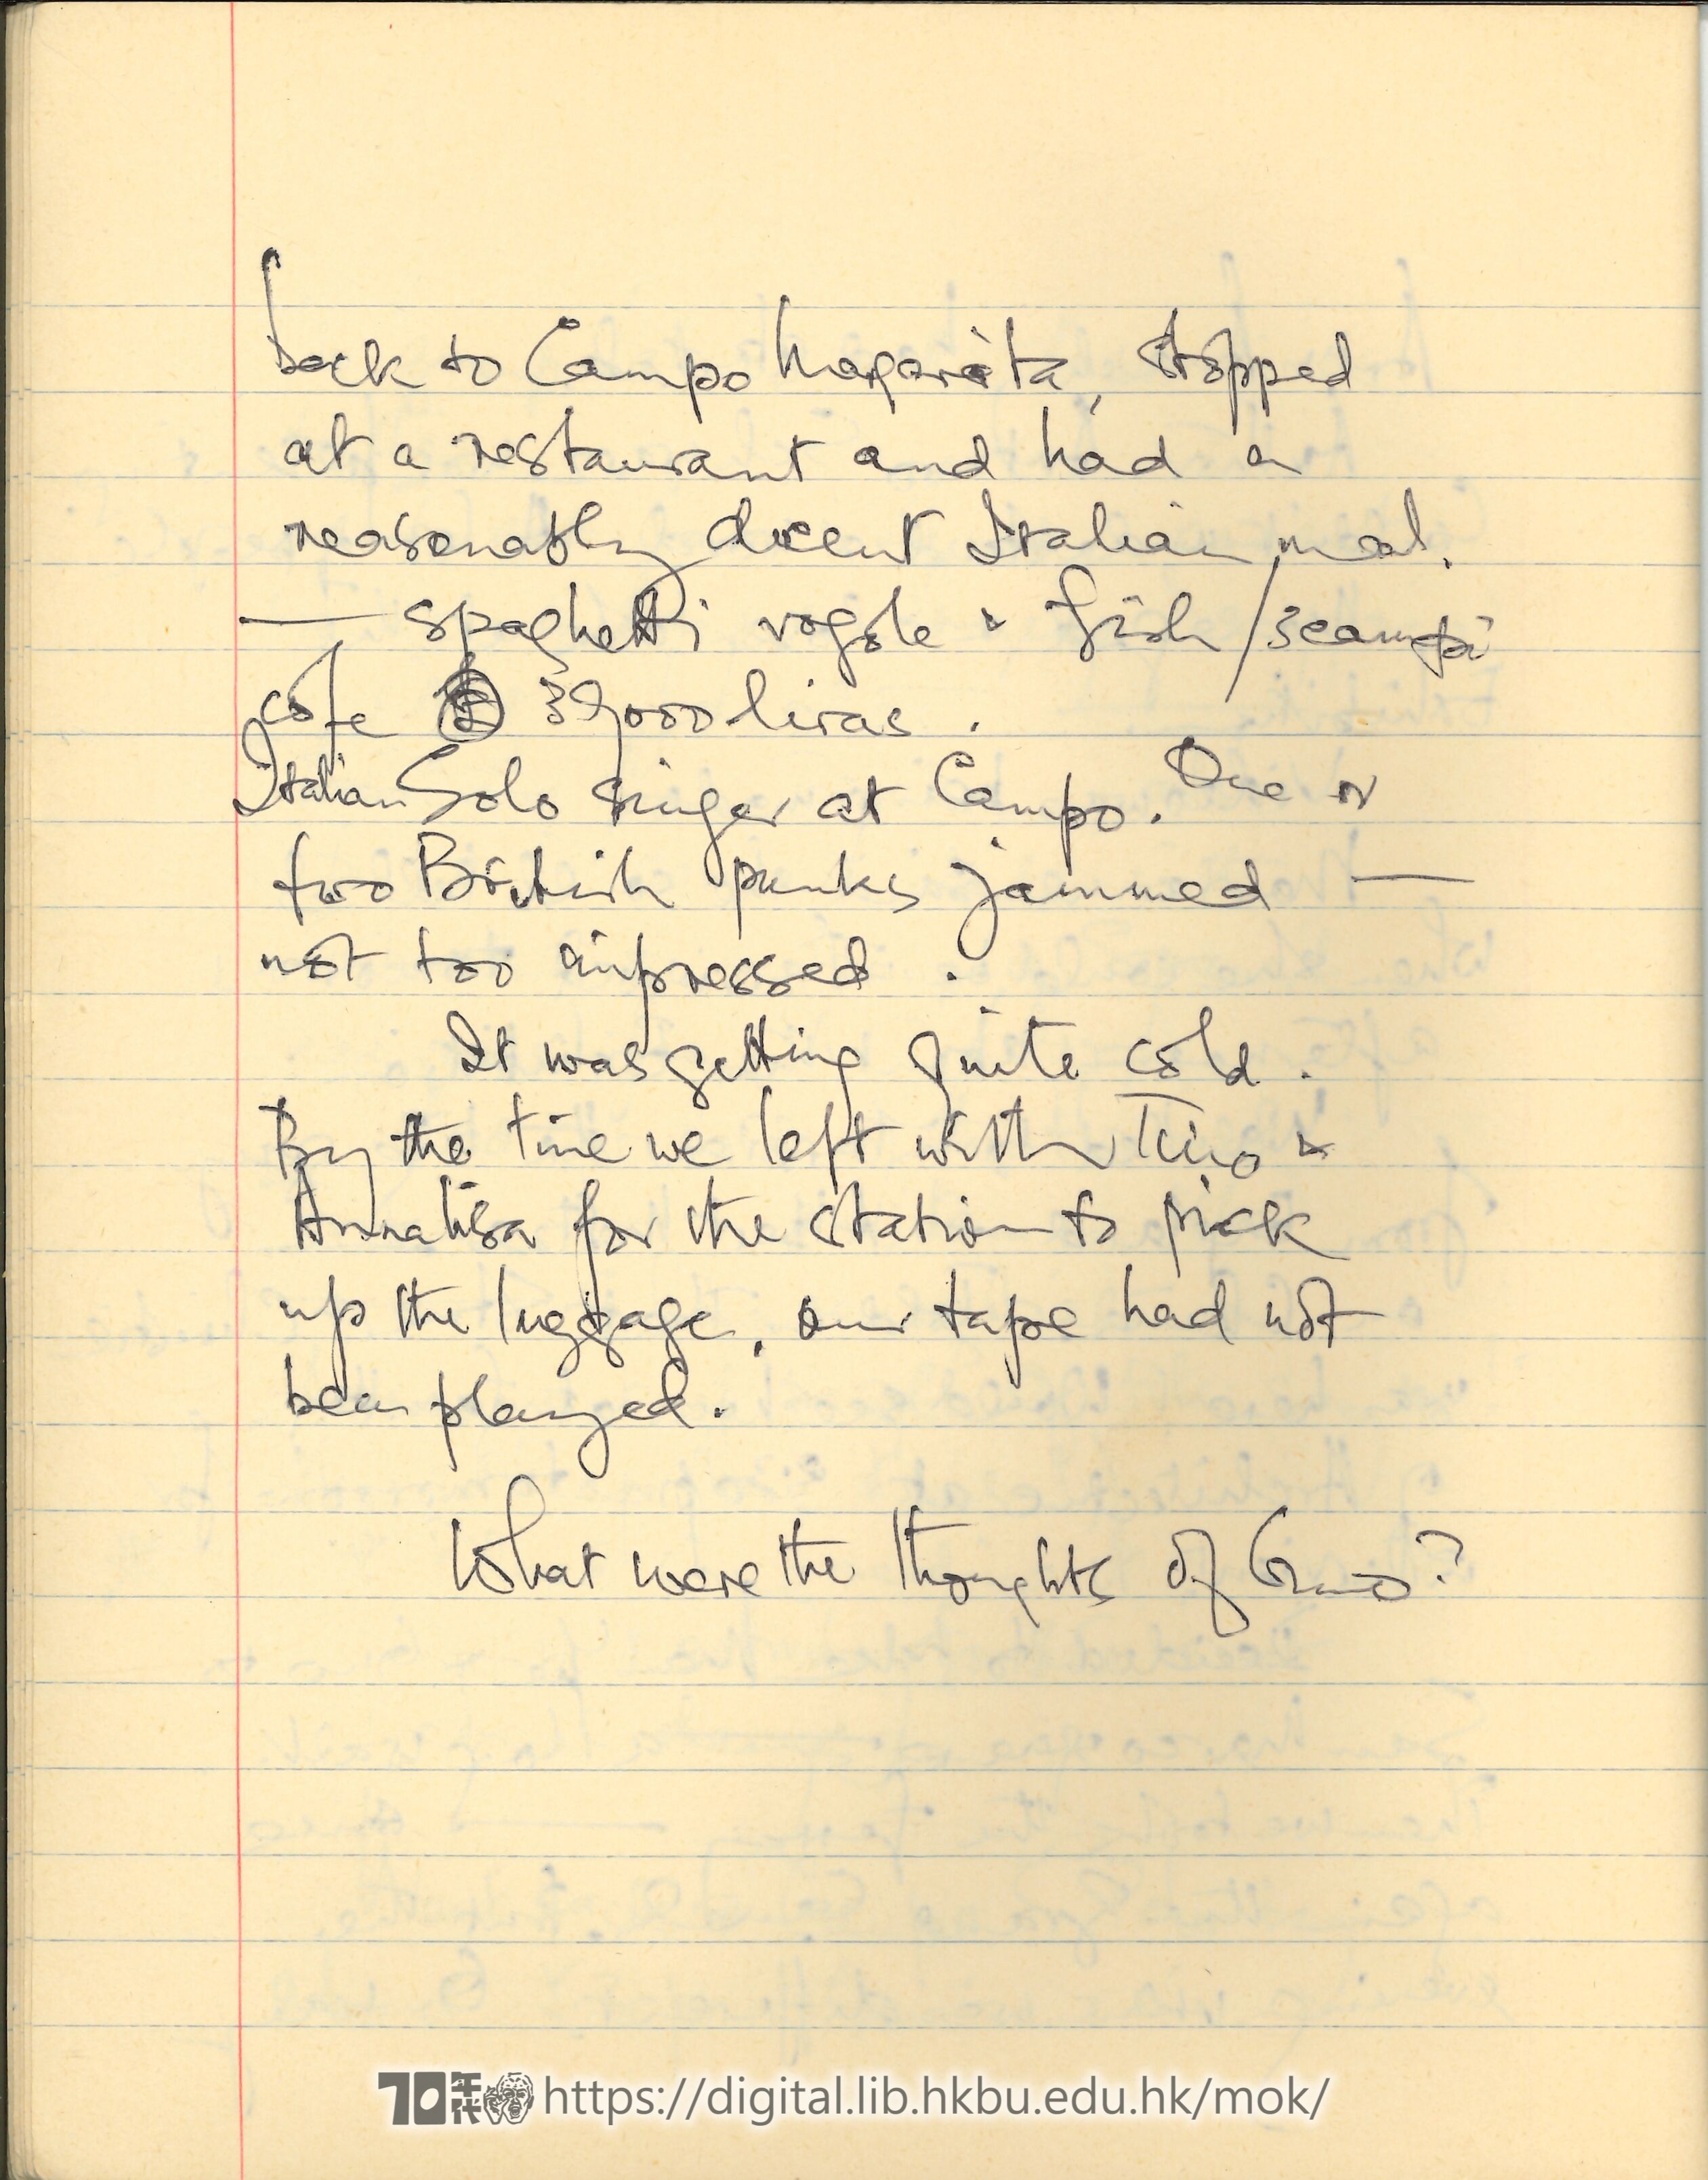 back to Campo Magarita, stopped
at a restaurant and had a
reasonably decent Italian meal.
— spaghetti vogole & fish / scampi
cofe 39000 liras.
Italian Solo singer at Campo. One or
two British punks jammed —
not too impressed.
It was getting quite cold.
By the time we left with Tino &
Annalisa for the station to pick
up the luggage, our tape had not
been played.
What were the thoughts of
70年代 https://digital.lib.hkbu.edu.hk/mok/